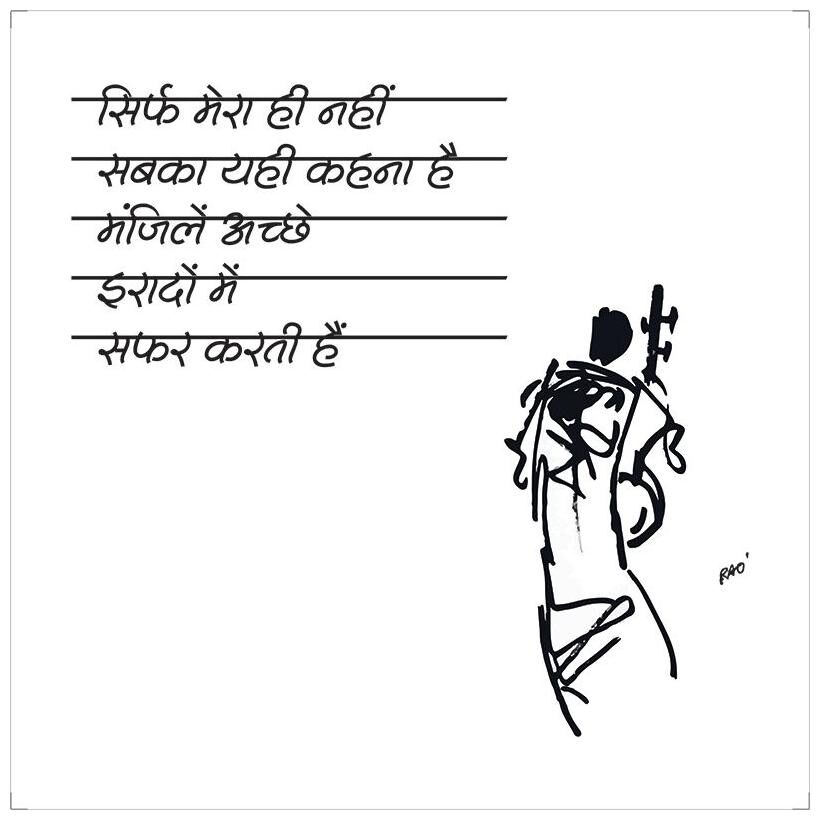 सिर्फ मेरा ही नहीं
सबका यही कहना है
मंजिलें अच्छे
इरादों में
सफर करती हैं
RAO'